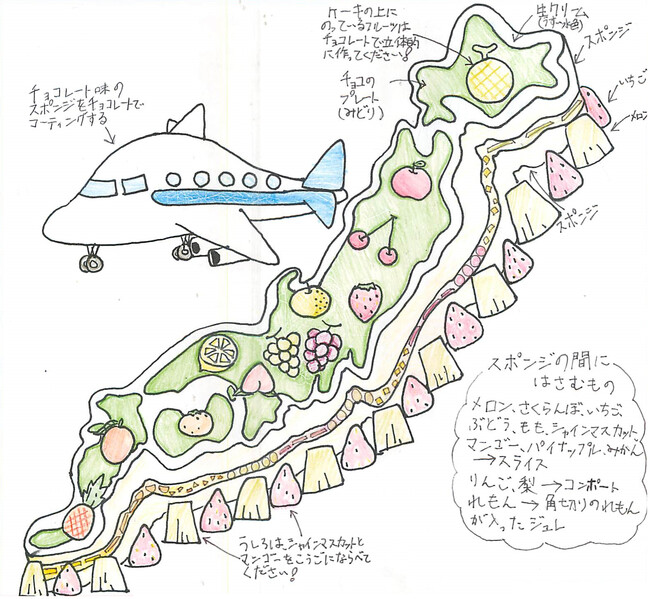 ケーキの上に
のっているフルーツは
チョコレートで立体的
に作ってください!
生クリーム
(うすい水色)
スポンジ
いちご
メロン
チョコの
プレート
(みどり)
チョコレート味の
スポンジをチョコレートで
コーティングする
スポンジ
スポンジの間に
はさむもの
メロン、さくらんぼ、いちご
ぶどう、もも、シャインマスカット、
マンゴー、パイナップル、みかん
→スライス
りんご、梨→コンポート
れもん→角切りのれもん
が入ったジュレ
うしろは、シャインマスカットと
マンゴーをこうごにならべて
ください!